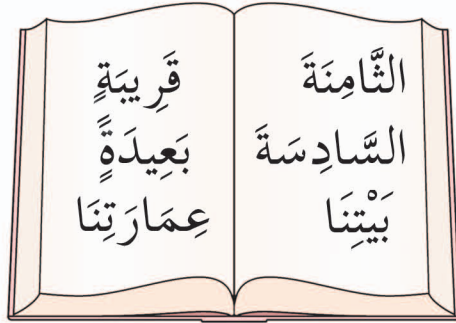 الثَّامِنَةَ
السَّادِسَةَ
بَيْتِنَا
قَرِيبَةٍ
بَعِيدَةٍ
عِمَارَتِنَا